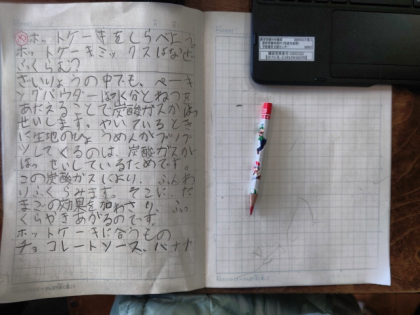 ホットケーキをしらべよう
ホットケーキミックスはなぜ、
ふくらむ?
ざいりょうの中でも、ベーキ
ングパウダーは水分とねつを
あたえることで炭酸ガスがはっ
せいします。やいているとき
に生地のひょうめんがプツプ
ツしてくるのは、炭酸ガスが
はっせいしているためです。
この炭酸ガスにより、ふんわ
りふくらみます。そこに、た
まごの効果も加わさり、ふっ
くらやきあがるのです。
ホットケーキに合うもの
チョコレートソース、バナナ